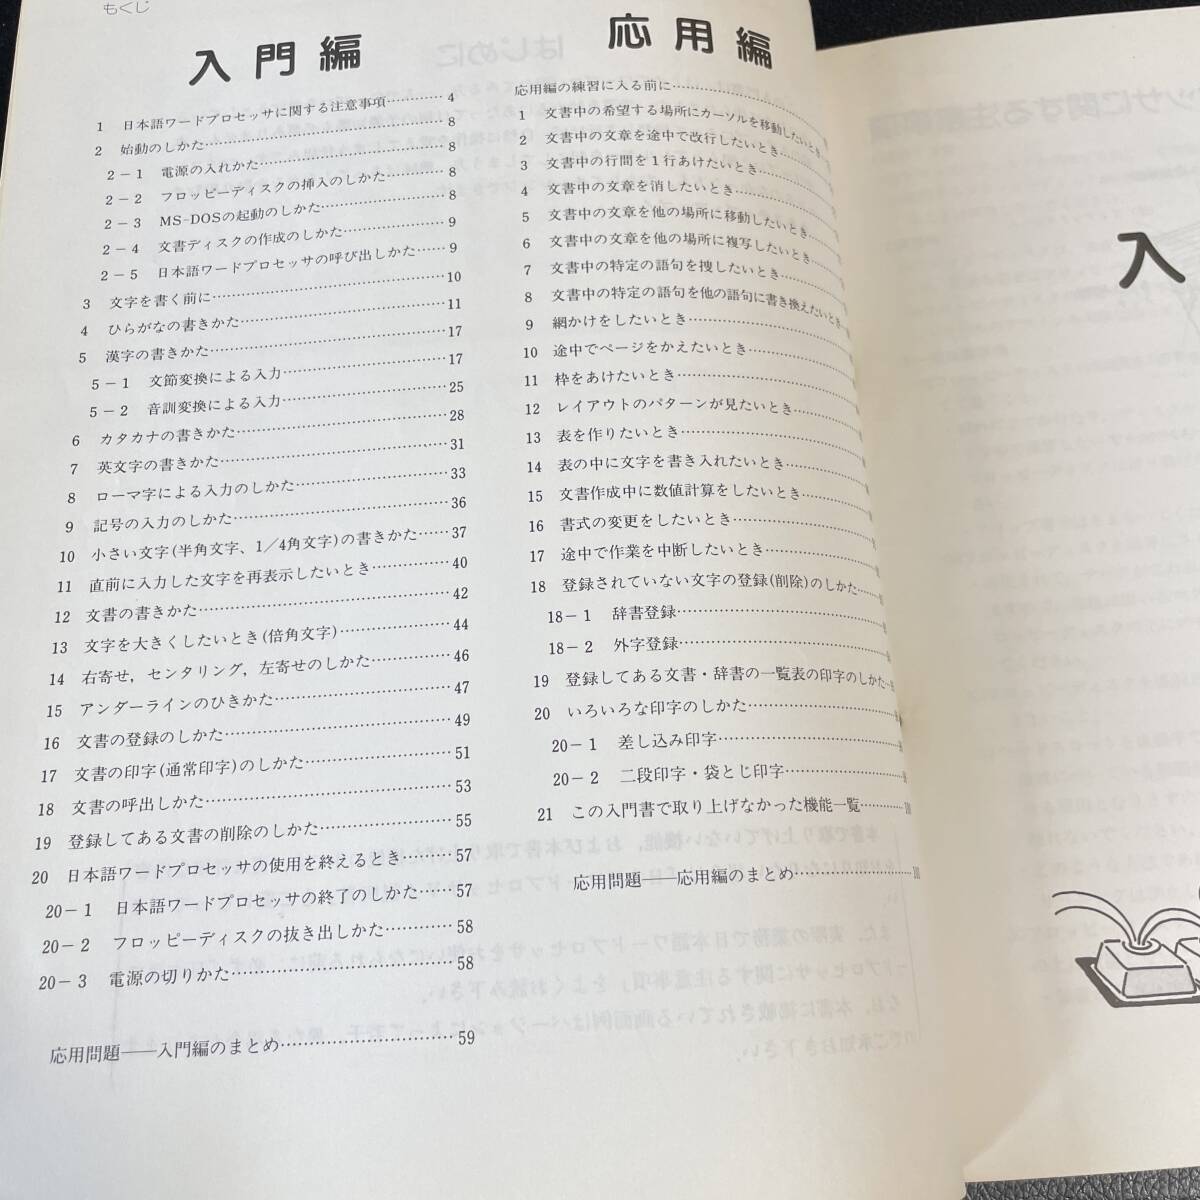 もくじ
入門編
1 日本語ワードプロセッサに関する注意事項…………4
2 始動のしかた…………8
2-1 電源の入れかた…………8
2-2 フロッピーディスクの挿入のしかた…………8
2-3 MS-DOSの起動のしかた…………8
2-4 文書ディスクの作成のしかた…………9
2-5 日本語ワードプロセッサの呼び出しかた…………9
3 文字を書く前に…………10
4 ひらがなの書きかた…………11
5 漢字の書きかた…………17
5-1 文節変換による入力…………17
5-2 音訓変換による入力…………25
6 カタカナの書きかた…………28
7 英文字の書きかた…………31
8 ローマ字による入力のしかた…………33
9 記号の入力のしかた…………36
10 小さい文字(半角文字、1/4角文字)の書きかた……37
11 直前に入力した文字を再表示したいとき…………40
12 文書の書きかた…………42
13 文字を大きくしたいとき(倍角文字)…………44
14 右寄せ，センタリング，左寄せのしかた…………46
15 アンダーラインのひきかた…………47
16 文書の登録のしかた…………49
17 文書の印字(通常印字)のしかた…………51
18 文書の呼出しかた…………53
19 登録してある文書の削除のしかた…………55
20 日本語ワードプロセッサの使用を終えるとき………57
20-1 日本語ワードプロセッサの終了のしかた……57
20-2 フロッピーディスクの抜き出しかた…………58
20-3 電源の切りかた…………58
応用問題――入門編のまとめ…………59
応用編
応用編の練習に入る前に…………
1 文書中の希望する場所にカーソルを移動したいとき
2 文書中の文章を途中で改行したいとき…………
3 文書中の行間を1行あけたいとき…………
4 文書中の文章を消したいとき…………
5 文書中の文章を他の場所に移動したいとき…………
6 文書中の文章を他の場所に複写したいとき…………
7 文書中の特定の語句を捜したいとき…………
8 文書中の特定の語句を他の語句に書き換えたいとき
9 網かけをしたいとき…………
10 途中でページをかえたいとき…………
11 枠をあけたいとき…………
12 レイアウトのパターンが見たいとき…………
13 表を作りたいとき…………
14 表の中に文字を書き入れたいとき…………
15 文書作成中に数値計算をしたいとき…………
16 書式の変更をしたいとき…………
17 途中で作業を中断したいとき…………
18 登録されていない文字の登録(削除)のしかた……
18-1 辞書登録…………
18-2 外字登録…………
19 登録してある文書・辞書の一覧表の印字のしかた…
20 いろいろな印字のしかた…………
20-1 差し込み印字…………
20-2 二段印字・袋とじ印字…………
21 この入門書で取り上げなかった機能一覧…………
応用問題――応用編のまとめ…………
入